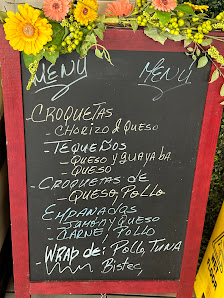 MENU MENÚ
- CROQUETAS
- CHORIZO & QUESO
- TEQUEÑOS
- QUESO y GUAYABA
- QUESO
- CROQUETAS DE
- QUESO, POLLO
EMPANADAS
- JAMÓN y QUESO
- CARNE, POLLO
- WRAP de: POLLO, TUNA
Bistec,